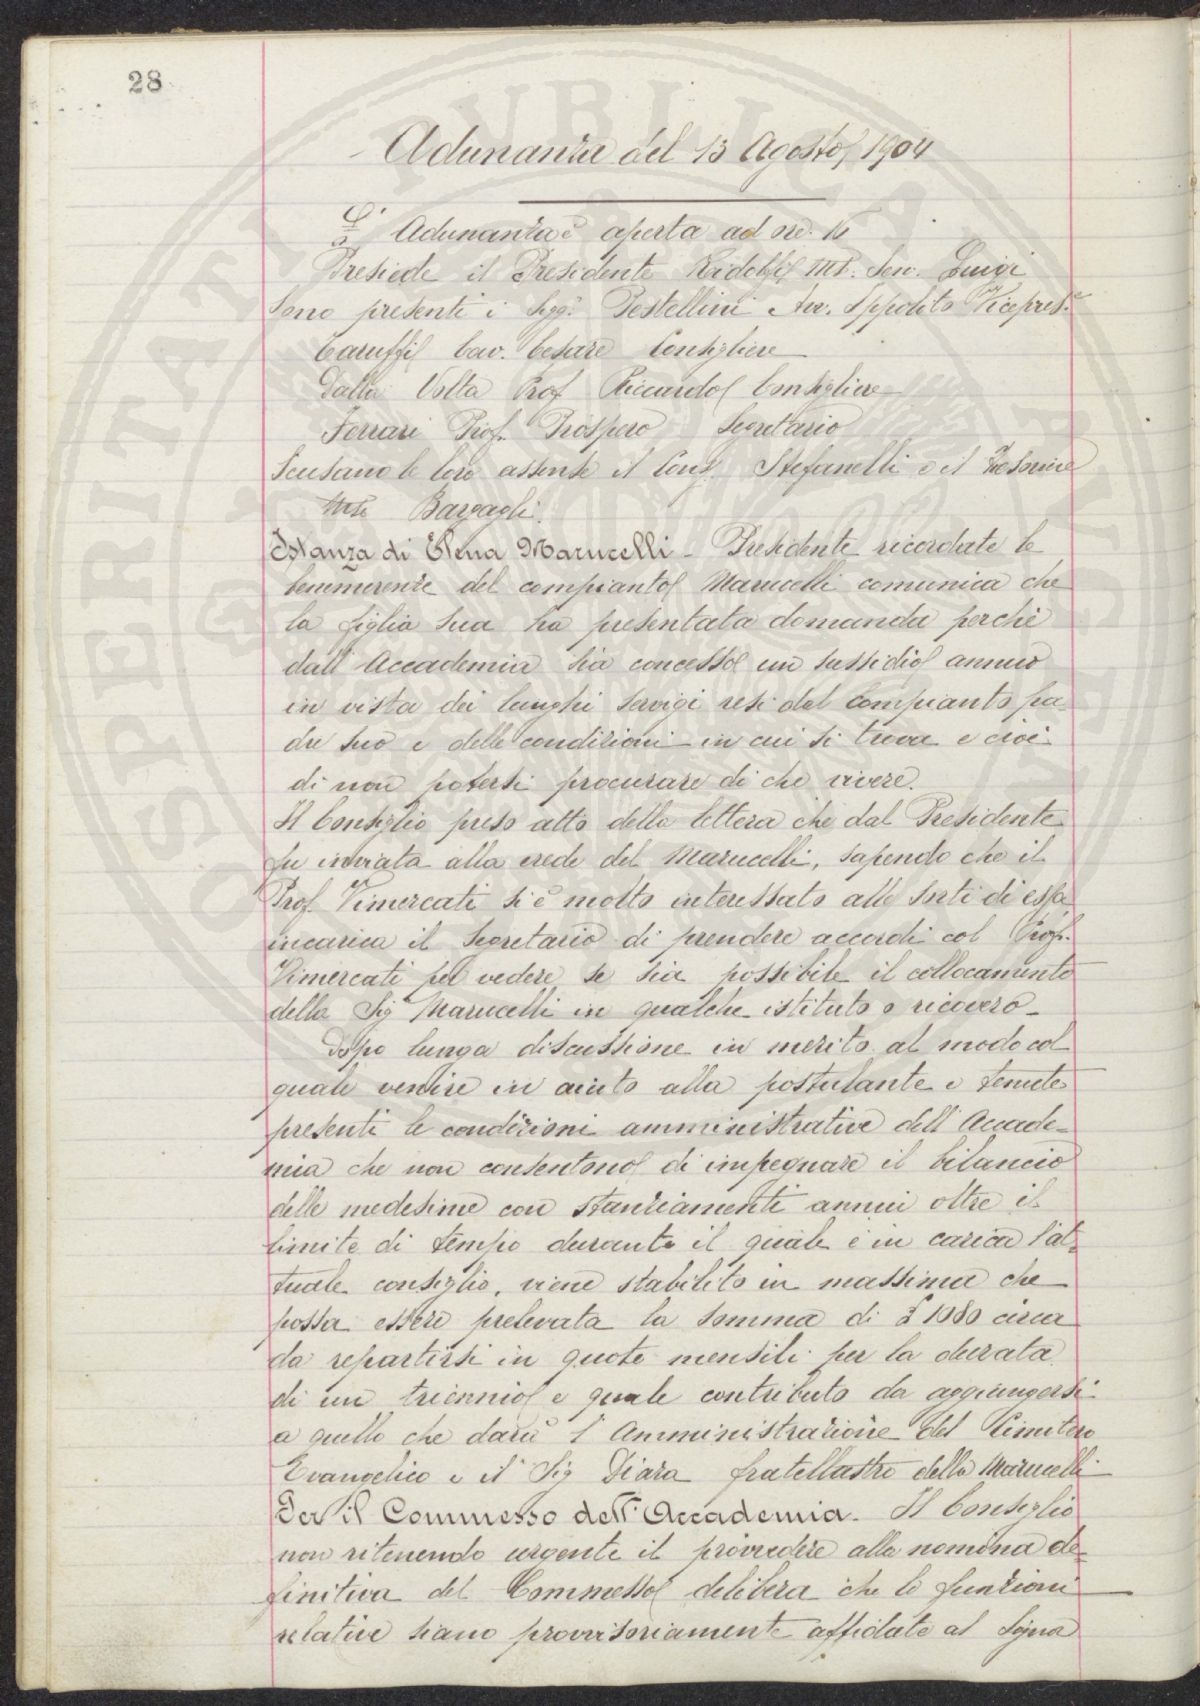 28
Adunanza del 13 Agosto 1904
L'Adunanza è aperta ad ore 16
Presiede il Presidente Ridolfi M. Sen. Luigi
Sono presenti i Sigg. Pestellini Avv. Ippolito Vicepres.e
Caruffi Cav. Cesare Consigliere
Dalla Volta Prof Riccardo Consigliere
Ferrari Prof. Prospero Segretario
Scusano le loro assenze il Cons. Stefanelli e il Tesoriere
Bargagli.
Istanza di Elena Marucelli - Presidente ricordate le
benemerenze del compianto Marucelli comunica che
la figlia sua ha presentata domanda perchè
dall'Accademia sia concesso un sussidio annuo
in vista dei lunghi servigi resi dal compianto pa-
dre suo e delle condizioni in cui si trova e cioè
di non potersi procurare di che vivere.
Il Consiglio preso atto della lettera che dal Presidente
fu inviata alla erede del Marucelli, sapendo che il
Prof. Vimercati si è molto interessato alle sorti di essa
incarica il Segretario di prendere accordi col Prof.
Vimercati per vedere se sia possibile il collocamento
della Sig Marucelli in qualche istituto o ricovero -
Dopo lunga discussione in merito al modo col
quale venire in aiuto alla postulante e tenute
presenti le condizioni amministrative dell'Accade-
mia che non consentono di impegnare il bilancio
delle medesime con stanziamenti annui oltre il
limite di tempo durante il quale è in carica l'at-
tuale consiglio, viene stabilito in massima che
possa essere prelevata la somma di £ 1080 circa
da repartirsi in quote mensili per la durata
di un triennio e quale contributo da aggiungersi
a quello che darà l'Amministrazione del Cimitero
Evangelico e il Sig Diara fratellastro della Marucelli
Per il Commesso dell'Accademia. Il Consiglio
non ritenendo urgente il provvedere alla nomina de-
finitiva del Commesso delibera che le funzioni
relative siano provvisoriamente affidate al Signo